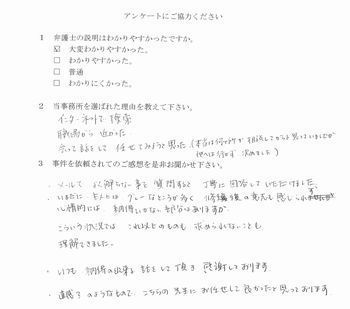 アンケートにご協力ください
1 弁護士の説明はわかりやすかったですか。
☑ 大変わかりやすかった。
□ わかりやすかった。
□ 普通
□ わかりにくかった。
2 当事務所を選ばれた理由を教えて下さい。
インターネットで検索
職場から近かった
会って話をして任せてみようと思った(本当は何ヶ所か相談してからと思っていましたが
他へは行かず決めました)
3 事件を依頼されてのご感想を是非お聞かせ下さい。
・メールでよく解らない事を質問すると丁寧に回答していただけました。
・いまだに はグレーなところが多く
心情的には納得いかない部分はありますが、
こういう状況ではこれ以上のものも求められないことも
理解できました。
・いつも納得の出来る話をして頂き感謝しております
・直感?のようなもので、こちらの先生にお任せして良かったと思っております